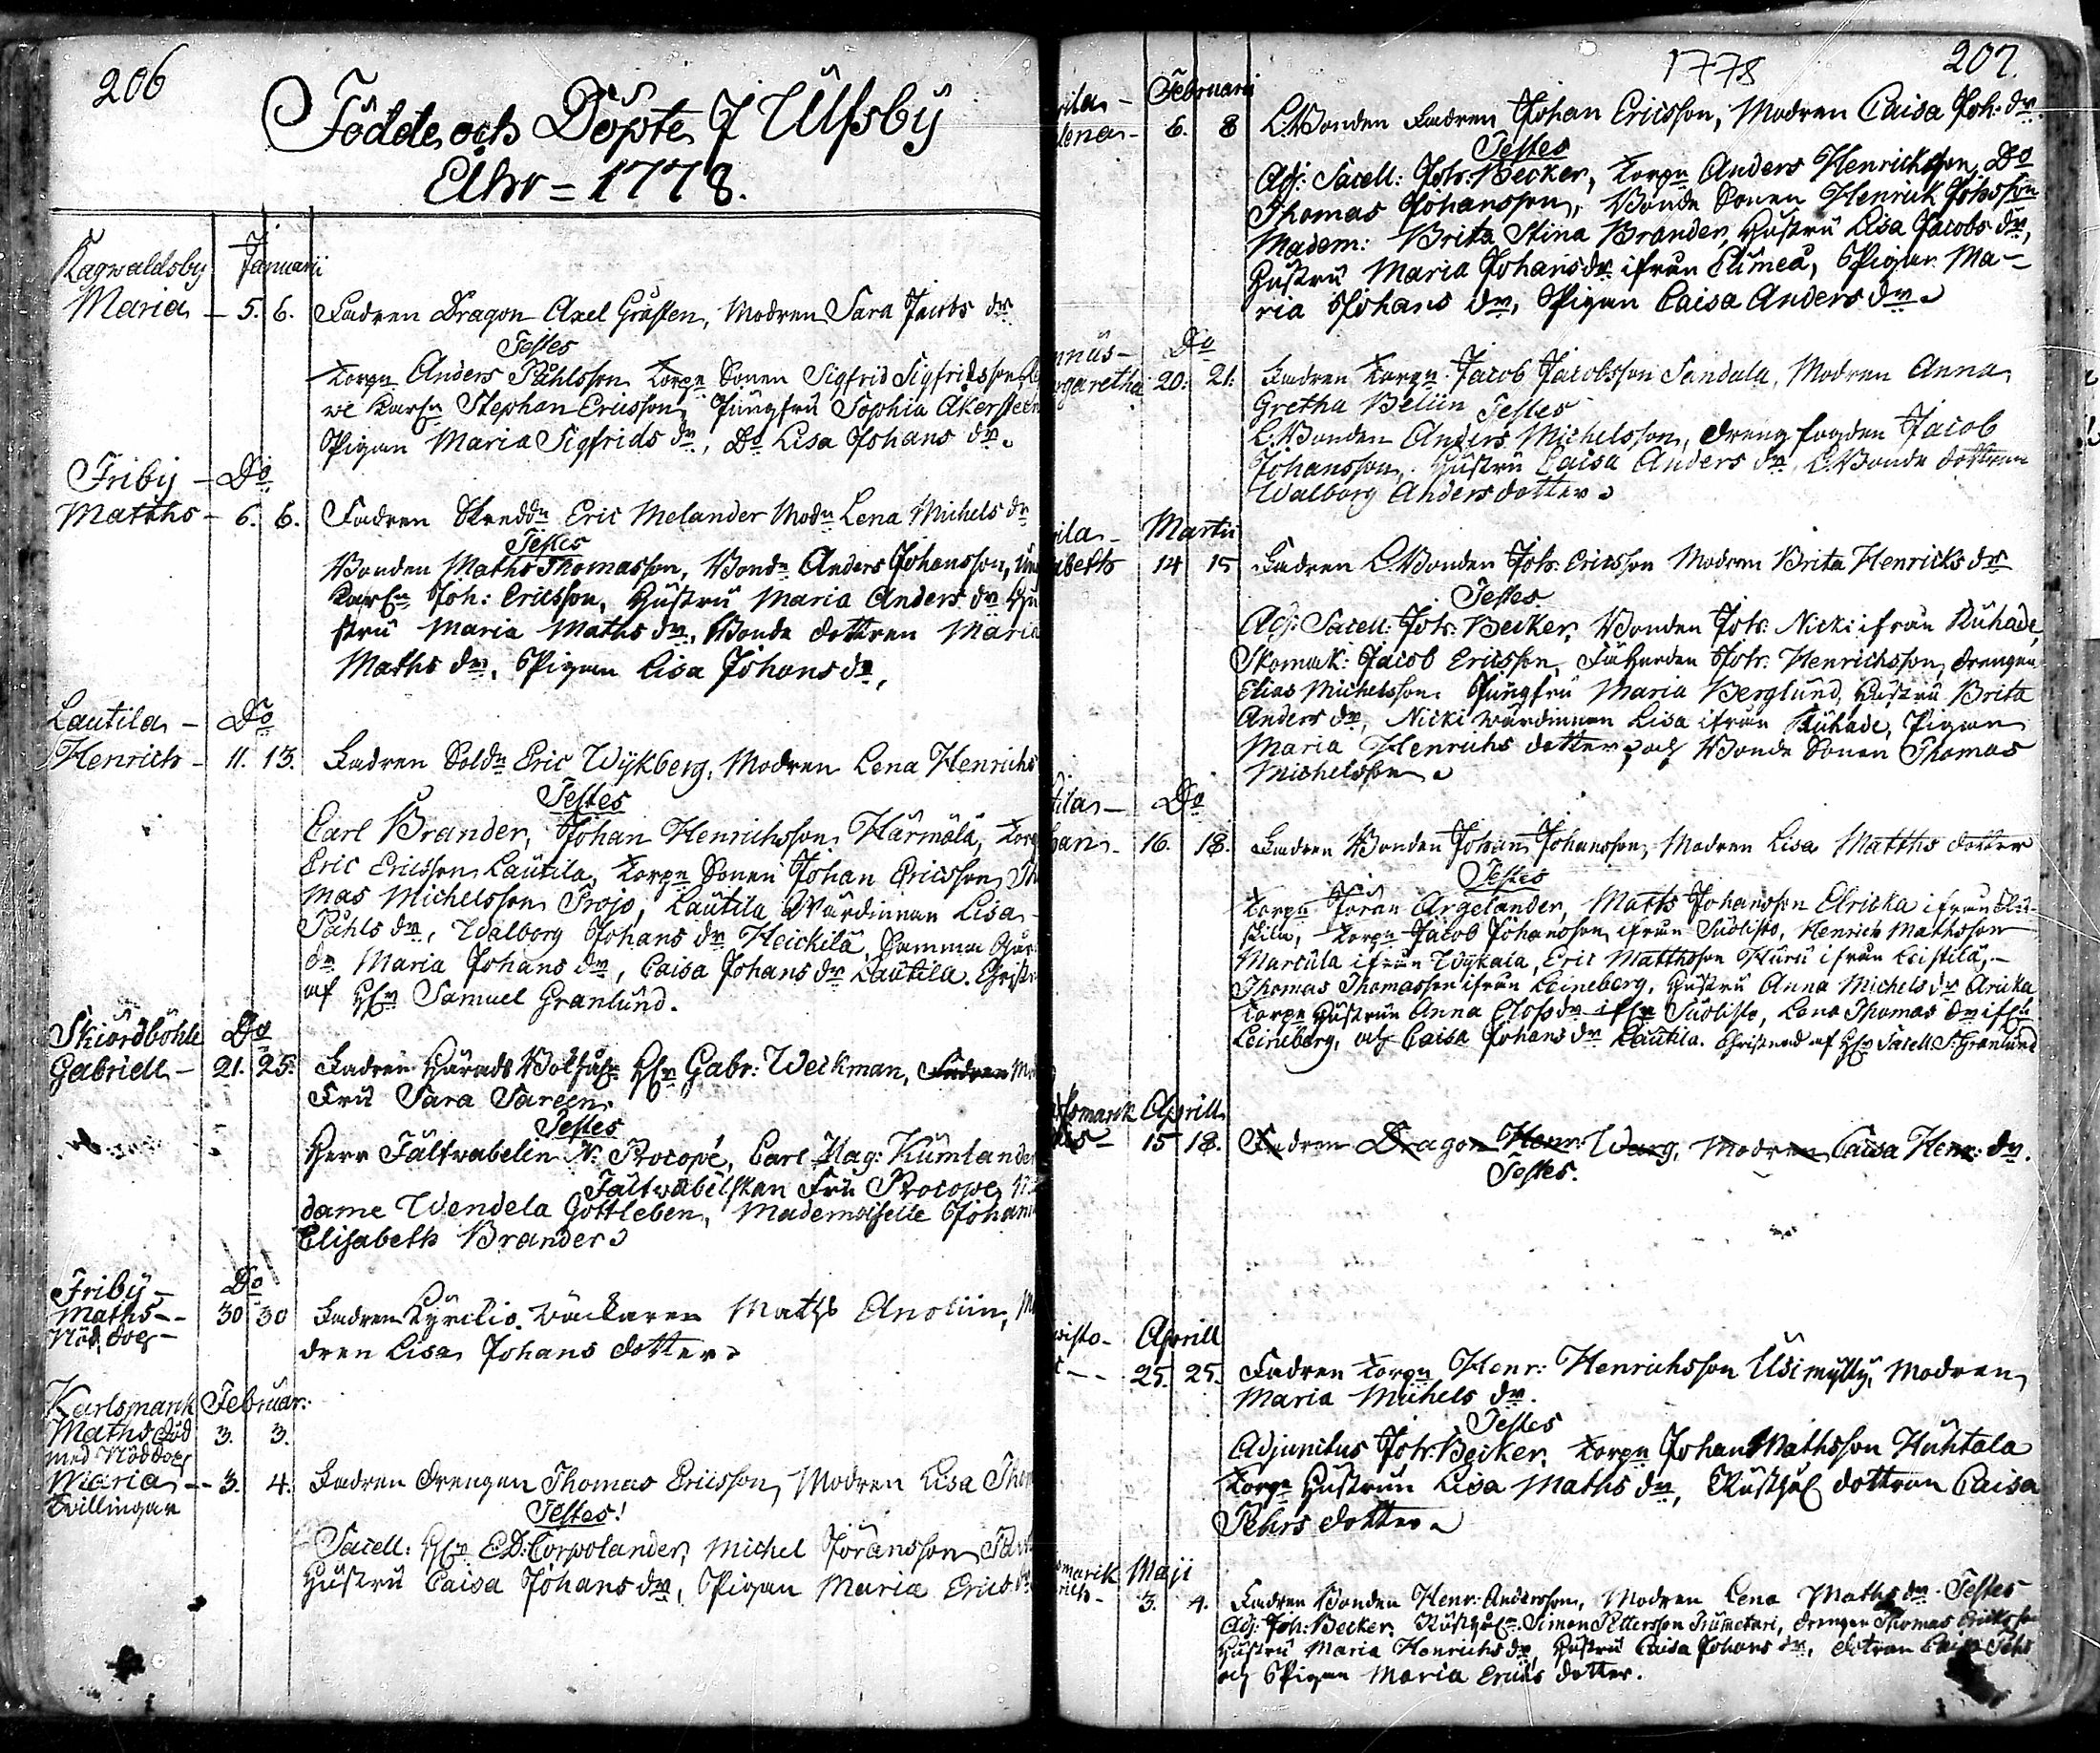 206
Födde och Döpte J Ulfsby
Åhr = 1778.
Ragwaldsby Januarii
Maria - 5. 6. Fadren Dragon Axel Grusten, Modren Sara Jacobs dr
Testes
Torpn Anders Påhlsson Torpn Sonen Sigfrid Sigfridsson
Karln Stephan Ericsson, Jungfru Sophia Akersteen
Pigan Maria Sigfrids dr, Do Lisa Johans dr.
Friby - Do
Matths - 6. 6. Fadren Skreddn Eric Melander Modn Lena Michels dr
Testes
Bonden Maths Thomasson, Bondn Anders Johansson,
Karln Joh: Ericsson, Hustru Maria Anders dr Hu
stru Maria Maths dr, Bonde dottren Maria
Maths dr. Pigan Lisa Johans dr,
Lautila - Do
Henrich - 11. 13. Fadren Soldn Eric Wijkberg, Modren Lena Henrichs
Testes
Carl Brander, Johan Henrichsson Härmälä, Torp
Eric Ericsson Lautila, Torpn Sonen Johan Ericsson, Tho
mas Michelsson Trojo, Lautila Wärdinnan Lisa
Påhls dr, Walborg Johans dr Heickilä, Samma
dn Maria Johans dr, Caisa Johans dr Lautila. Christn
af Hr Samuel Granlund.
Skiordböhle Do
Gabriel - 21. 25. Fadren Härads Hr Gabr: Weckman, Fadren Mo
Fru Sara Sareen
Testes
Herr Fältwäbeln N. Procopé, Carl Mag: Kumlander
Fältwäbelskan Fru Procope, Ma
dame Wendela Gottleben, Mademoiselle Johan
Elisabeth Brander
Friby - Do
Maths - - 30 30 Fadren Wäckaren Maths Anoliin, Mo
Nöd döpt -
dren Lisa Johans dotter
Karlsmark Februar:
Maths död 3. 3.
med Nöddop
Maria - - 3. 4. Fadren Drengen Thomas Ericsson, Modren Lisa Thom
Tvillingar
Testes!
Sacell: Hr E.D: Corpolander, Michel Jöransson
Hustru Caisa Johans dr, Pigan Maria Erics dr
1778 207.
Februarii
lena - 6. 8 L.Bonden Fadren Johan Ericsson, Modren Caisa Joh: dr.
Testes
Adj: Sacell: Joh: Becker, Torpn Anders Henricksson, Do
Thomas Johansson, Bonde Sonen Henrick Johsson
Madem: Brita Stina Brander, Hustru Lisa Jacobs dr,
Hustru Maria Johans dr ifrån Elimeä, Pigan Ma-
ria Johans dr, Pigan Caisa Anders dr
nnus - Do
rgaretha 20. 21. Fadren Torpn Jacob Jacobsson Sandula, Modren Anna
Gretha Beliin Testes
L.Bonden Anders Michelsson, Dreng fogden Jacob
Johansson, Hustru Caisa Anders dr, L.Bonde dottren
Walborg Anders dotter
ila - Martii
abeth 14 15 Fadren L.Bonden Joh: Ericsson Modren Brita Henricks dr
Testes
Adj: Sacell: Joh: Becker, Bonden Joh: Nicki ifrån Ruhade,
Skomak: Jacob Ericsson, Fäherden Joh: Henrichsson, Drengen
Elias Michelsson, Jungfru Maria Berglund, Hustru Brita
Anders dr, Nicki wärdinnan Lisa ifrån Ruhade, Pigan
Maria Henrichs dotter, och Bonde Sonen Thomas
Michelsson
tila - Do
han - 16. 18. Fadren Bonden Johan Johansson, Modren Lisa Matths dotter
Testes
Torpn Jöran Argelander, Maths Johansson Elricka ifrån
Torpn Jacob Johansson ifrån Suolisto, Henrich Mathsson
Marcula ifrån Wijkala, Eric Matthsson Kuru ifrån Leistilä,
Thomas Thomasson ifrån Leineberg, Hustru Anna Michels dr Aricka
Torpn Hustrun Anna dr ifrn Suolisto, Lena Thomas dr ifrn
Leineberg, och Caisa Johans dr Lautila. Christnad af Hr Sacell S. Granlund
lsmark Aprill
15 18. Fadren Dragon Henr: Warg, Modren Caisa Henr: dr.
Testes.
wisto - Aprill
- - 25. 25. Fadren Torpn Henr: Henrichsson Usimylly, Modren
Maria Michels dr.
Testes
Adjunctus Joh: Becker, Torpn Johan Mathsson Huhtala
Torpn Hustrun Lisa Maths dr, Rusthol dottran Caisa
Pehrs dotter
smark Maji
rich - 3. 4. Fadren Bonden Henr: Andersson, Modren Lena Maths dr. Testes
Adj: Joh: Becker, Simon Pettersson, drengen Thomas Ericksson
Hustru Maria Henrichs dr, Hustru Caisa Johans dr, dottran
och Pigan Maria Erichs dotter.